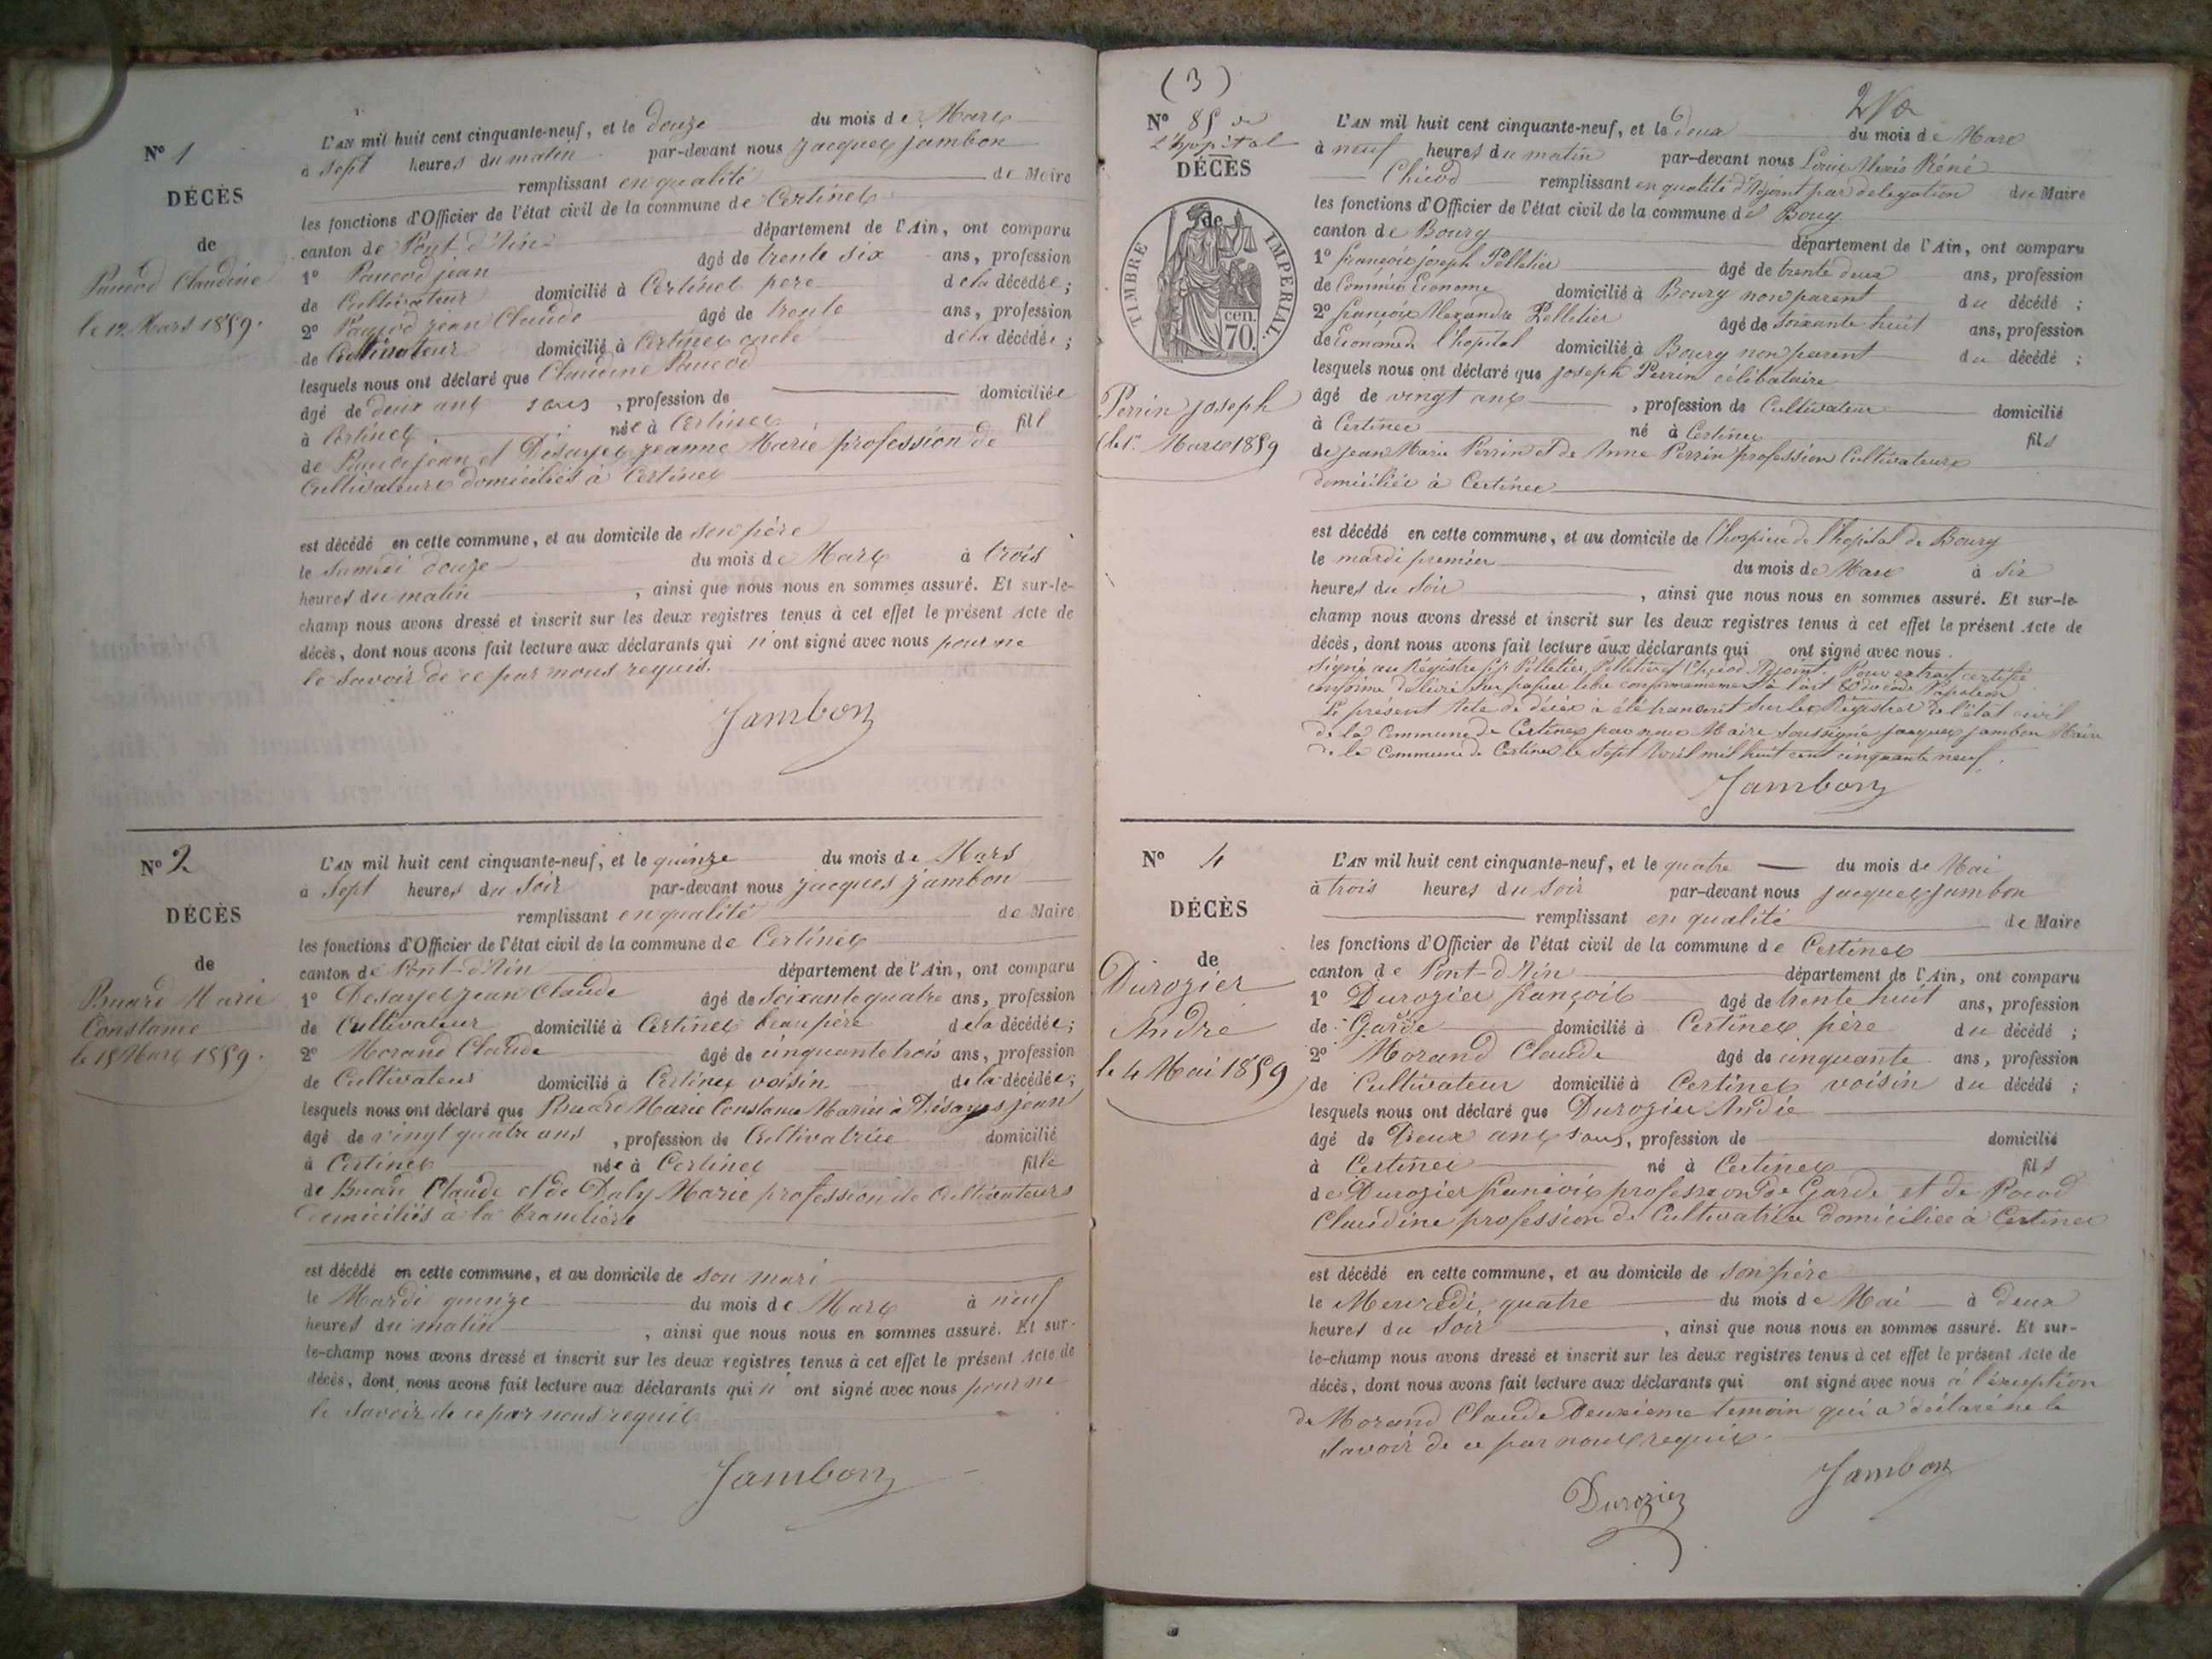 N° 1
DÉCÈS
de
Paucod Claudine
le 12 Mars 1859.
L'AN mil huit cent cinquante-neuf, et le douze du mois de Mars
à sept heures du matin par-devant nous jacques jambon
remplissant en qualité de Maire
les fonctions d'Officier de l'état civil de la commune de Certines
canton de Pont-d'Ain département de l'Ain, ont comparu
1° Paucod jean âgé de trente six ans, profession
de Cultivateur domicilié à Certines pere de la décédée;
2° Paucod jean Claude âgé de trente ans, profession
de Cultivateur domicilié à Certines oncle de la décédée;
lesquels nous ont déclaré que Claudine Paucod
âgé de deux ans sans, profession de domiciliée
à Certines née à Certines fill
de Paucod jean et Désayes jeanne Marie profession de
Cultivateurs domiciliés à Certines
est décédé en cette commune, et au domicile de son père
le Samedi douze du mois de Mars à trois
heures du matin, ainsi que nous nous en sommes assuré. Et sur-le-
champ nous avons dressé et inscrit sur les deux registres tenus à cet effet le présent Acte de
décès, dont nous avons fait lecture aux déclarants qui n'ont signé avec nous pour ne
le savoir de ce par nous requis.
Jambon
N° 2
DÉCÈS
de
Buard Marie
Constance
le 15 Mars 1859.
L'AN mil huit cent cinquante-neuf, et le quinze du mois de Mars
à Sept heures du Soir par-devant nous jacques jambon
remplissant en qualité de Maire
les fonctions d'Officier de l'état civil de la commune de Certines
canton de Pont-d'Ain département de l'Ain, ont comparu
1° Desayes jean Claude âgé de soixante quatre ans, profession
de Cultivateur domicilié à Certines beau père de la décédée;
2° Morand Claude âgé de cinquante trois ans, profession
de Cultivateur domicilié à Certines voisin de la décédée;
lesquels nous ont déclaré que Buard Marie Constance Mariée à Désayes jean
âgé de vingt quatre ans, profession de Cultivatrice domicilié
à Certines née à Certines fille
de Buard Claude et de Daly Marie profession de Cultivateurs
domiciliés à la tranclière
est décédé en cette commune, et au domicile de son mari
le Mardi quinze du mois de Mars à neuf
heures du matin, ainsi que nous nous en sommes assuré. Et sur-
le-champ nous avons dressé et inscrit sur les deux registres tenus à cet effet le présent Acte de
décès, dont nous avons fait lecture aux déclarants qui n'ont signé avec nous pour ne
le savoir de ce par nous requis
Jambon
(3)
N° 85 de
l'hôpital
DÉCÈS
de
TIMBRE IMPERIAL.
cen.
70.
Perrin joseph
le 1er Mars 1859
L'AN mil huit cent cinquante-neuf, et le deux du mois de Mars
à neuf heures du matin par-devant nous Louis Alexis Réné
Chicod remplissant en qualité d'Adjoint par délégation du Maire
les fonctions d'Officier de l'état civil de la commune de Bourg
canton de Bourg département de l'Ain, ont comparu
1° françois joseph Pelletier âgé de trente deux ans, profession
de Commis Econome domicilié à Bourg non parent du décédé;
2° françois Alexandre Pelletier âgé de soixante huit ans, profession
de Econome de l'hopital domicilié à Bourg non parent du décédé;
lesquels nous ont déclaré que joseph Perrin célibataire
âgé de vingt ans, profession de Cultivateur domicilié
à Certines né à Certines fils
de jean Marie Perrin et de Anne Perrin profession Cultivateurs
domiciliés à Certines
est décédé en cette commune, et au domicile de l'hospice de l'hopital de Bourg
le mardi premier du mois de Mars à Six
heures du Soir, ainsi que nous nous en sommes assuré. Et sur-le-
champ nous avons dressé et inscrit sur les deux registres tenus à cet effet le présent Acte de
décès, dont nous avons fait lecture aux déclarants qui ont signé avec nous.
Signé au Régistre f.j. Pelletier, Pelletier et Chicod Adjoint. Pour extrait certifié
conforme délivré sur papier libre conformément à l'art 80 du code Napoléon
Le présent Acte de décès a été transcrit sur les Régistres de l'état civil
de la Commune de Certines par nous Maire soussigné jacques jambon Maire
de la Commune de Certines le Sept Avril mil huit cent cinquante neuf.
Jambon
N° 4
DÉCÈS
de
Durozier
André
le 4 Mai 1859
L'AN mil huit cent cinquante-neuf, et le quatre du mois de Mai
à trois heures du Soir par-devant nous jacques jambon
remplissant en qualité de Maire
les fonctions d'Officier de l'état civil de la commune de Certines
canton de Pont-d'Ain département de l'Ain, ont comparu
1° Durozier françois âgé de trente huit ans, profession
de Garde domicilié à Certines père du décédé;
2° Morand Claude âgé de cinquante ans, profession
de Cultivateur domicilié à Certines voisin du décédé;
lesquels nous ont déclaré que Durozier André
âgé de Deux ans sans, profession de domicilié
à Certines né à Certines fils
de Durozier francois profession de Garde et de Pocod
Claudine profession de Cultivatrice domiciliés à Certines
est décédé en cette commune, et au domicile de son père
le Mercredi, quatre du mois de Mai à deux
heures du Soir, ainsi que nous nous en sommes assuré. Et sur-
le-champ nous avons dressé et inscrit sur les deux registres tenus à cet effet le présent Acte de
décès, dont nous avons fait lecture aux déclarants qui ont signé avec nous à l'exception
de Morand Claude Deuxieme temoin qui a déclaré ne le
savoir de ce par nous requis.
Jambon
Durozier